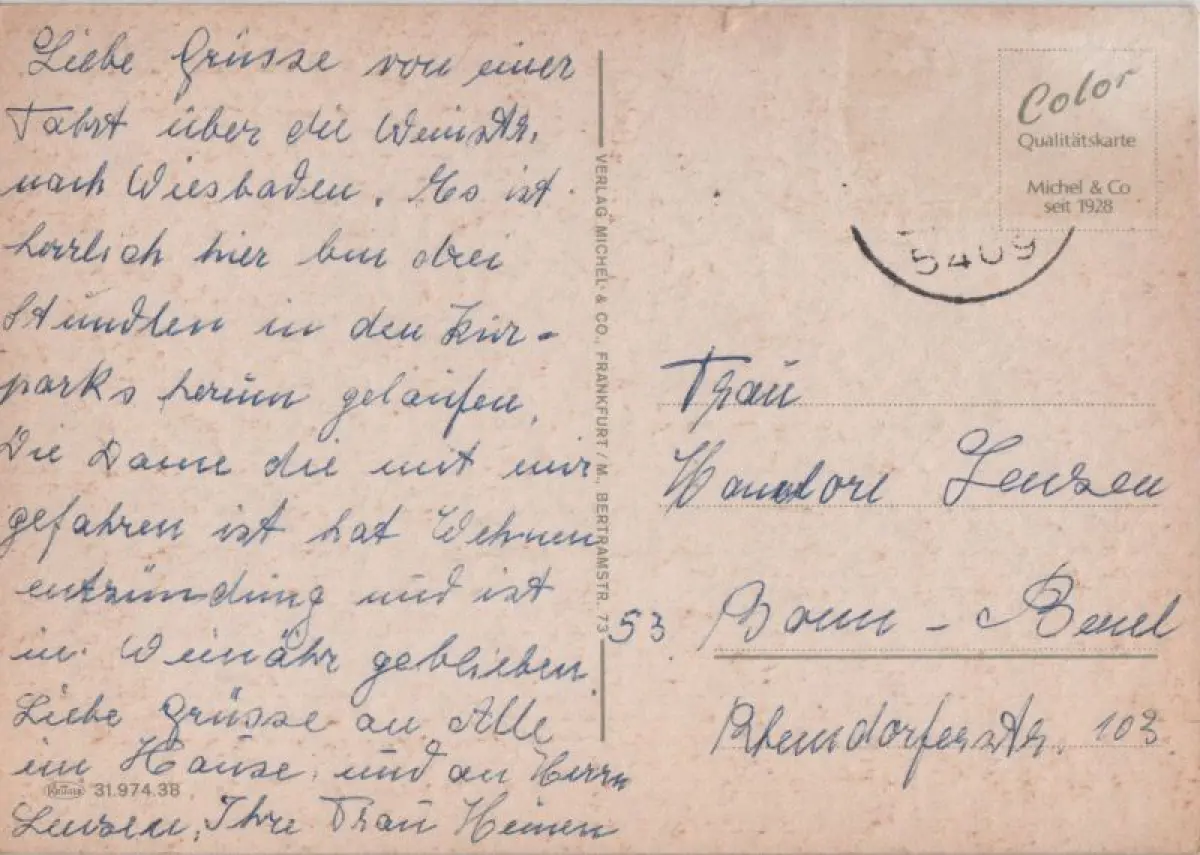 Liebe Grüsse von einer
Fahrt über die Weinstr.
nach Wiesbaden. Es ist
herrlich hier bin drei
Stundlen in den Kur-
parks herum gelaufen.
Die Dame die mit mir
gefahren ist hat Wehnen
entzündung und ist
in Weinähr geblieben.
Liebe Grüsse an Alle
im Hause, und an Herrn
Lenzen, Ihre Frau Heinen
31.974.38
VERLAG MICHEL & CO., FRANKFURT/M., BERTRAMSTR. 73
Color
Qualitätskarte
Michel & Co
seit 1928
5409
Frau
Hannelore Lenzen
53 Bonn - Beuel
103